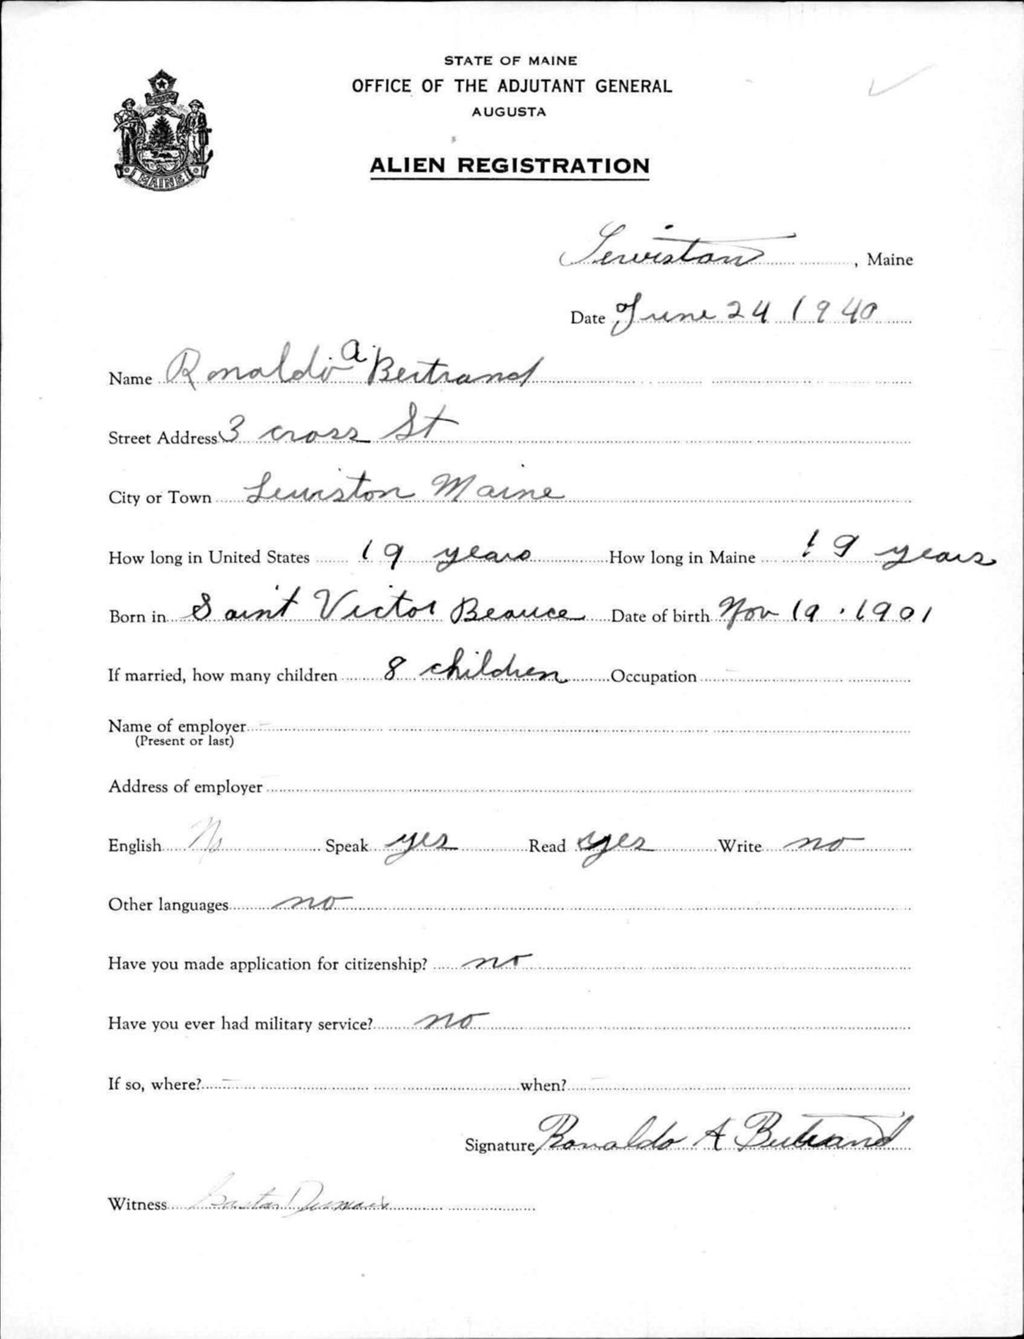 STATE OF MAINE
OFFICE OF THE ADJUTANT GENERAL
AUGUSTA
ALIEN REGISTRATION
MAINE
Lewiston, Maine
Date June 24 1940
Name Ronaldo a. Bertrand
Street Address 3 cross St
City or Town Lewiston Maine
How long in United States 19 years How long in Maine 19 years
Born in Saint Victor Beauce Date of birth Nov 19 . 1901
If married, how many children 8 children Occupation
Name of employer
(Present or last)
Address of employer
English No Speak yes Read yes Write no
Other languages no
Have you made application for citizenship? no
Have you ever had military service? no
If so, where? when?
Signature Ronaldo A Bertrand
Witness